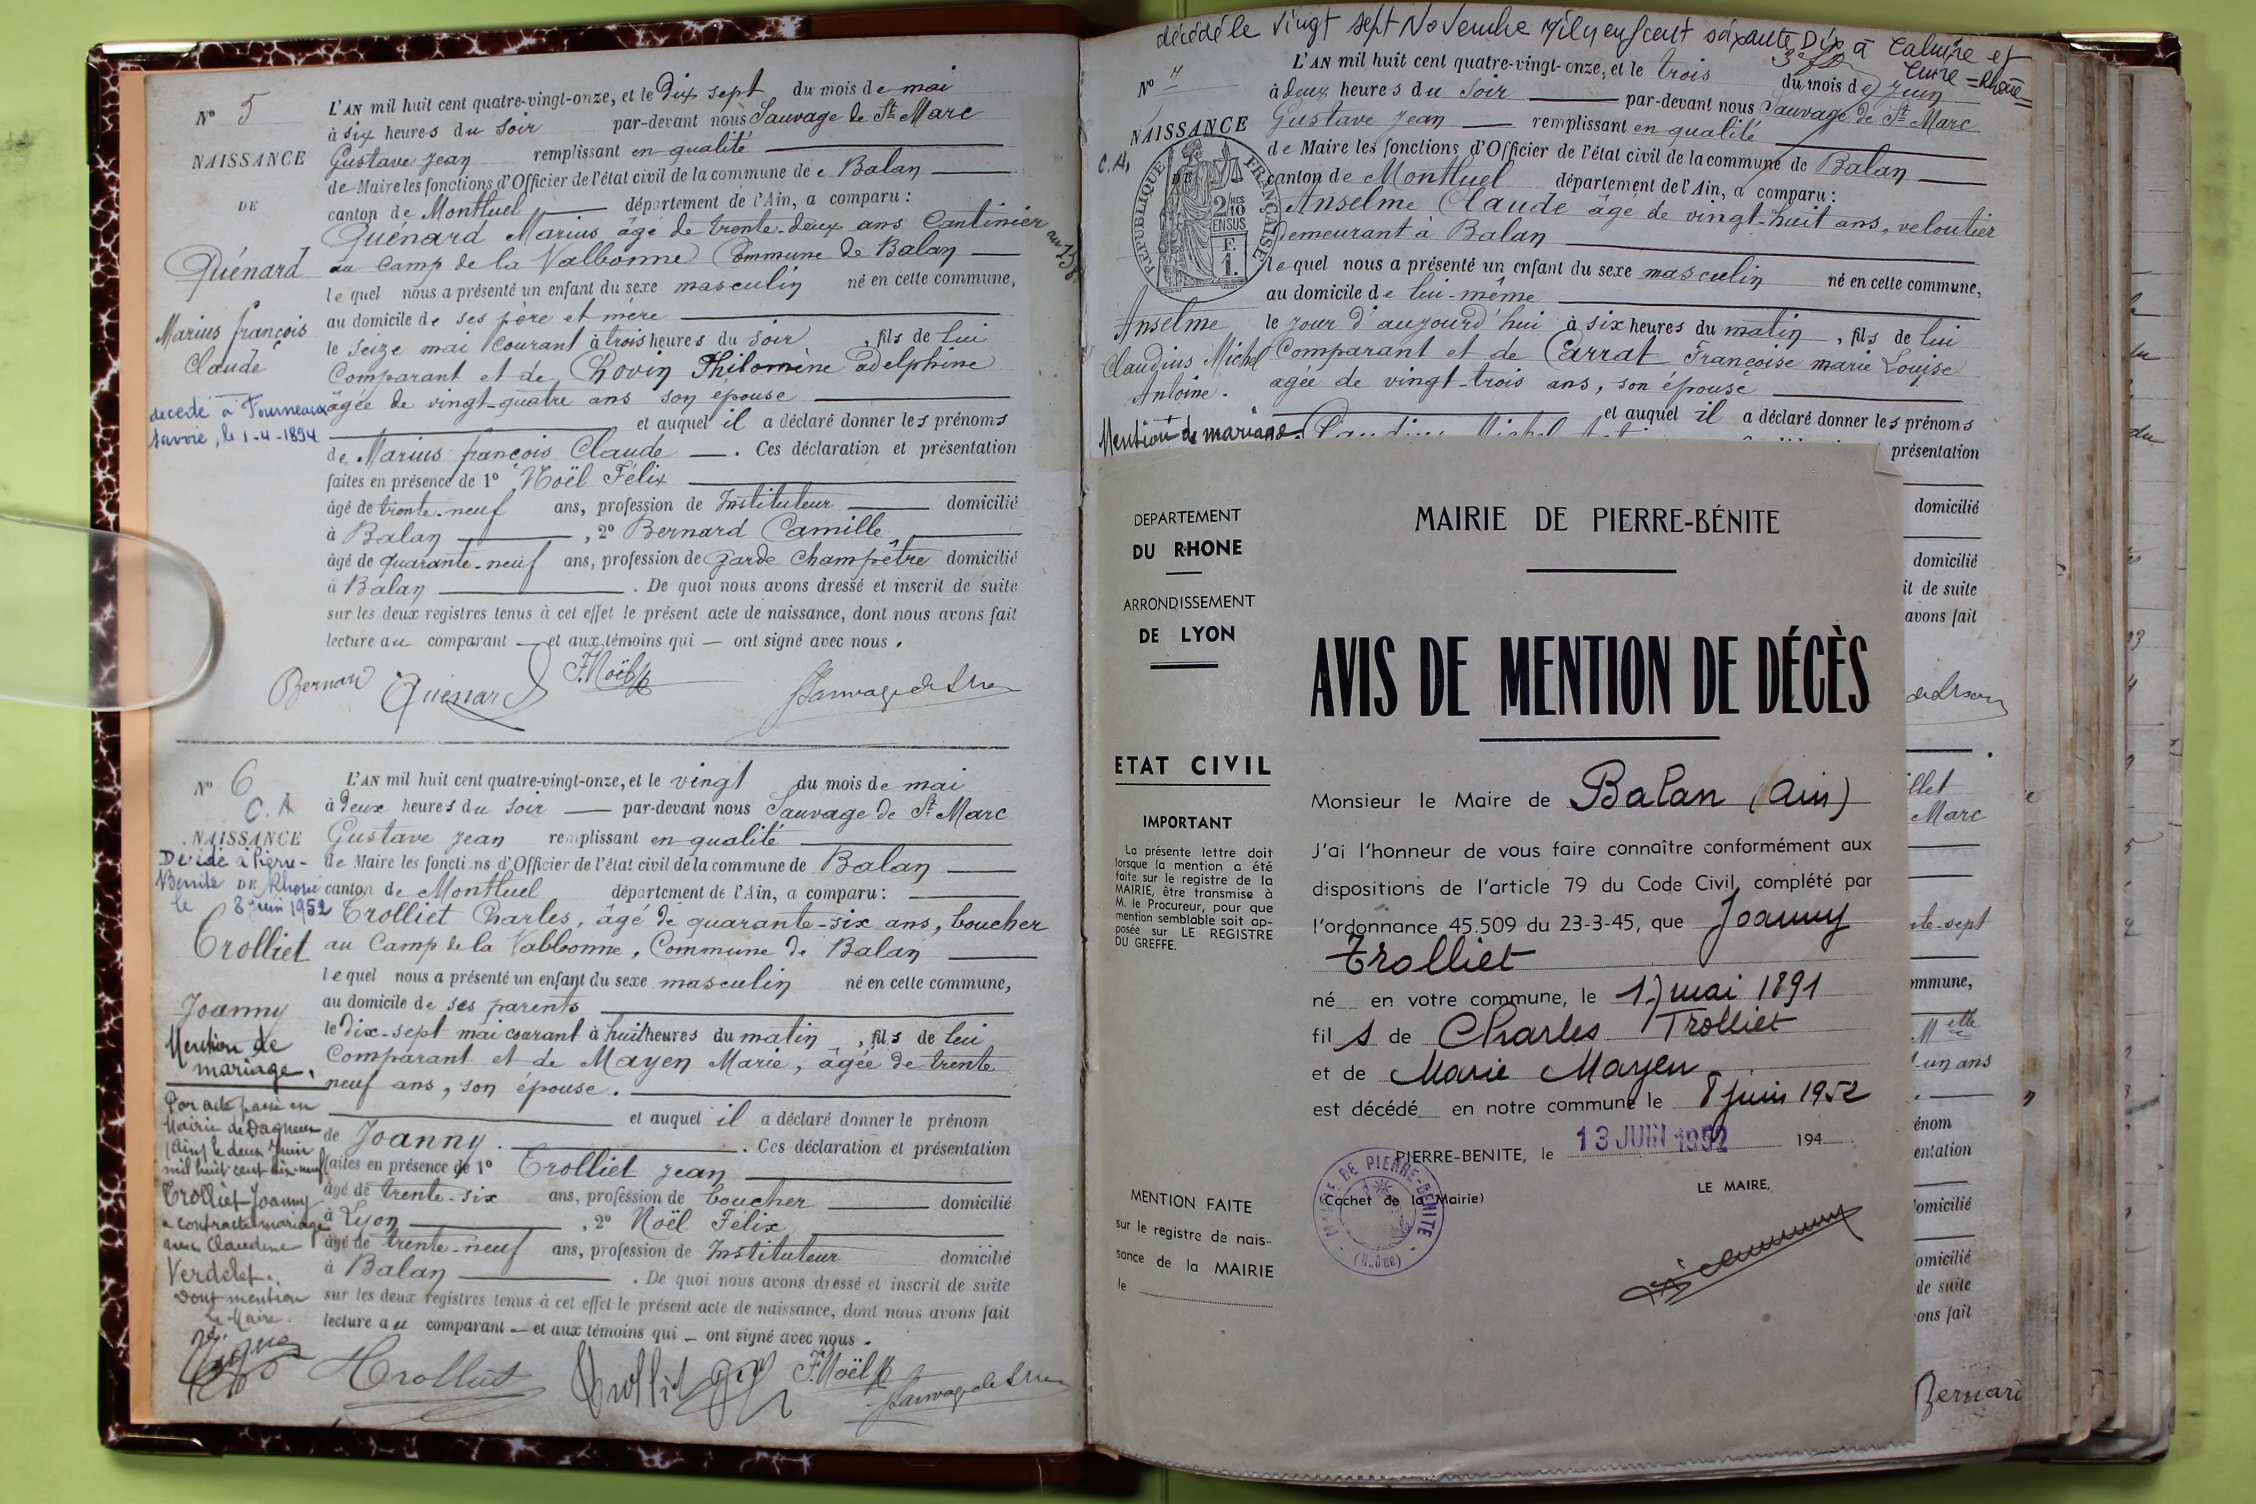 N° 5
NAISSANCE
DE
Quénard
Marius françois
Claude
decedé à Fourneaux
Savoie, le 1-4-1894
L'AN mil huit cent quatre-vingt-onze, et le Dix sept du mois de mai
à six heures du soir par-devant nous Sauvage de St Marc
Gustave Jean remplissant en qualité
de Maire les fonctions d'Officier de l'état civil de la commune de Balan
canton de Montluel département de l'Ain, a comparu :
Quénard Marius âgé de trente-deux ans Cantinier
au Camp de la Valbonne Commune de Balan
lequel nous a présenté un enfant du sexe masculin né en cette commune,
au domicile de ses père et mère
le seize mai courant à trois heures du soir, fils de lui
Comparant et de Chovin Philomène Adelphine
âgée de vingt-quatre ans son épouse
et auquel il a déclaré donner les prénoms
de Marius françois Claude. Ces déclaration et présentation
faites en présence de 1° Noël Félix
âgé de trente-neuf ans, profession de Instituteur domicilié
à Balan, 2° Bernard Camille
âgé de quarante-neuf ans, profession de garde champêtre domicilié
à Balan. De quoi nous avons dressé et inscrit de suite
sur les deux registres tenus à cet effet le présent acte de naissance, dont nous avons fait
lecture au comparant et aux témoins qui ont signé avec nous.
Bernard Quénard F. Noël Sauvage de St Marc
N° 6
C. A
NAISSANCE
DE
Décidé à Pierre-
Bénite Rhône
le 8 juin 1952
Trolliet
Joanny
Mention de
mariage.
Par acte passé en
Mairie de Dagneux
(Ain) le deux Juin
mil huit cent dix-neuf
Trolliet Joanny
a contracté mariage
avec Claudine
Verdelet.
Dont mention
Le Maire.
L'AN mil huit cent quatre-vingt-onze, et le vingt du mois de mai
à deux heures du soir par-devant nous Sauvage de St Marc
Gustave Jean remplissant en qualité
de Maire les fonctions d'Officier de l'état civil de la commune de Balan
canton de Montluel département de l'Ain, a comparu :
Trolliet Charles, âgé de quarante-six ans, boucher
au Camp de la Valbonne, Commune de Balan
lequel nous a présenté un enfant du sexe masculin né en cette commune,
au domicile de ses parents
le Dix-sept mai courant à huit heures du matin, fils de lui
Comparant et de Mayen Marie, âgée de trente
neuf ans, son épouse.
et auquel il a déclaré donner le prénom
de Joanny. Ces déclaration et présentation
faites en présence de 1° Trolliet Jean
âgé de trente-six ans, profession de boucher domicilié
à Lyon, 2° Noël Félix
âgé de trente-neuf ans, profession de Instituteur domicilié
à Balan. De quoi nous avons dressé et inscrit de suite
sur les deux registres tenus à cet effet le présent acte de naissance, dont nous avons fait
lecture au comparant et aux témoins qui ont signé avec nous.
Trolliet Trolliet F. Noël Sauvage de St Marc
décédé le vingt sept Novembre Mil neuf cent soixante Dix à Caluire et
Cuire = Rhône =
N° 7
NAISSANCE
C. A,
DE
RÉPUBLIQUE FRANÇAISE
2 10 EN SUS
F. 1.
Anselme
Claudius Michel
Antoine.
Mention de mariage.
L'AN mil huit cent quatre-vingt-onze, et le trois du mois de Juin
à deux heures du soir par-devant nous Sauvage de St Marc
Gustave Jean remplissant en qualité
de Maire les fonctions d'Officier de l'état civil de la commune de Balan
canton de Montluel département de l'Ain, a comparu :
Anselme Claude âgé de vingt-huit ans, veloutier
demeurant à Balan
lequel nous a présenté un enfant du sexe masculin né en cette commune,
au domicile de lui-même
le jour d'aujourd'hui à six heures du matin, fils de lui
Comparant et de Carrat Françoise marie Louise
agée de vingt-trois ans, son épouse
et auquel il a déclaré donner les prénoms
présentation
domicilié
domicilié
it de suite
avons fait
DEPARTEMENT
DU RHONE
ARRONDISSEMENT
DE LYON
ETAT CIVIL
IMPORTANT
La présente lettre doit
lorsque la mention a été
faite sur le registre de la
MAIRIE, être transmise à
M. le Procureur, pour que
mention semblable soit ap-
posée sur LE REGISTRE
DU GREFFE.
MENTION FAITE
sur le registre de nais-
sance de la MAIRIE
le
MAIRIE DE PIERRE-BÉNITE
AVIS DE MENTION DE DÉCÈS
Monsieur le Maire de Balan (Ain)
J'ai l'honneur de vous faire connaître conformément aux
dispositions de l'article 79 du Code Civil, complété par
l'ordonnance 45.509 du 23-3-45, que Joanny
Trolliet
né en votre commune, le 17 mai 1891
fils de Charles Trolliet
et de Marie Mayen
est décédé en notre commune le 8 juin 1952
PIERRE-BENITE, le 13 JUIN 1952 194
(Cachet de la Mairie)
LE MAIRE,
MAIRIE DE PIERRE-BENITE
(Rhône)
illet
Marc
nte-sept
ommune,
un ans
énom
entation
domicilié
omicilié
de suite
ons fait
Bernard